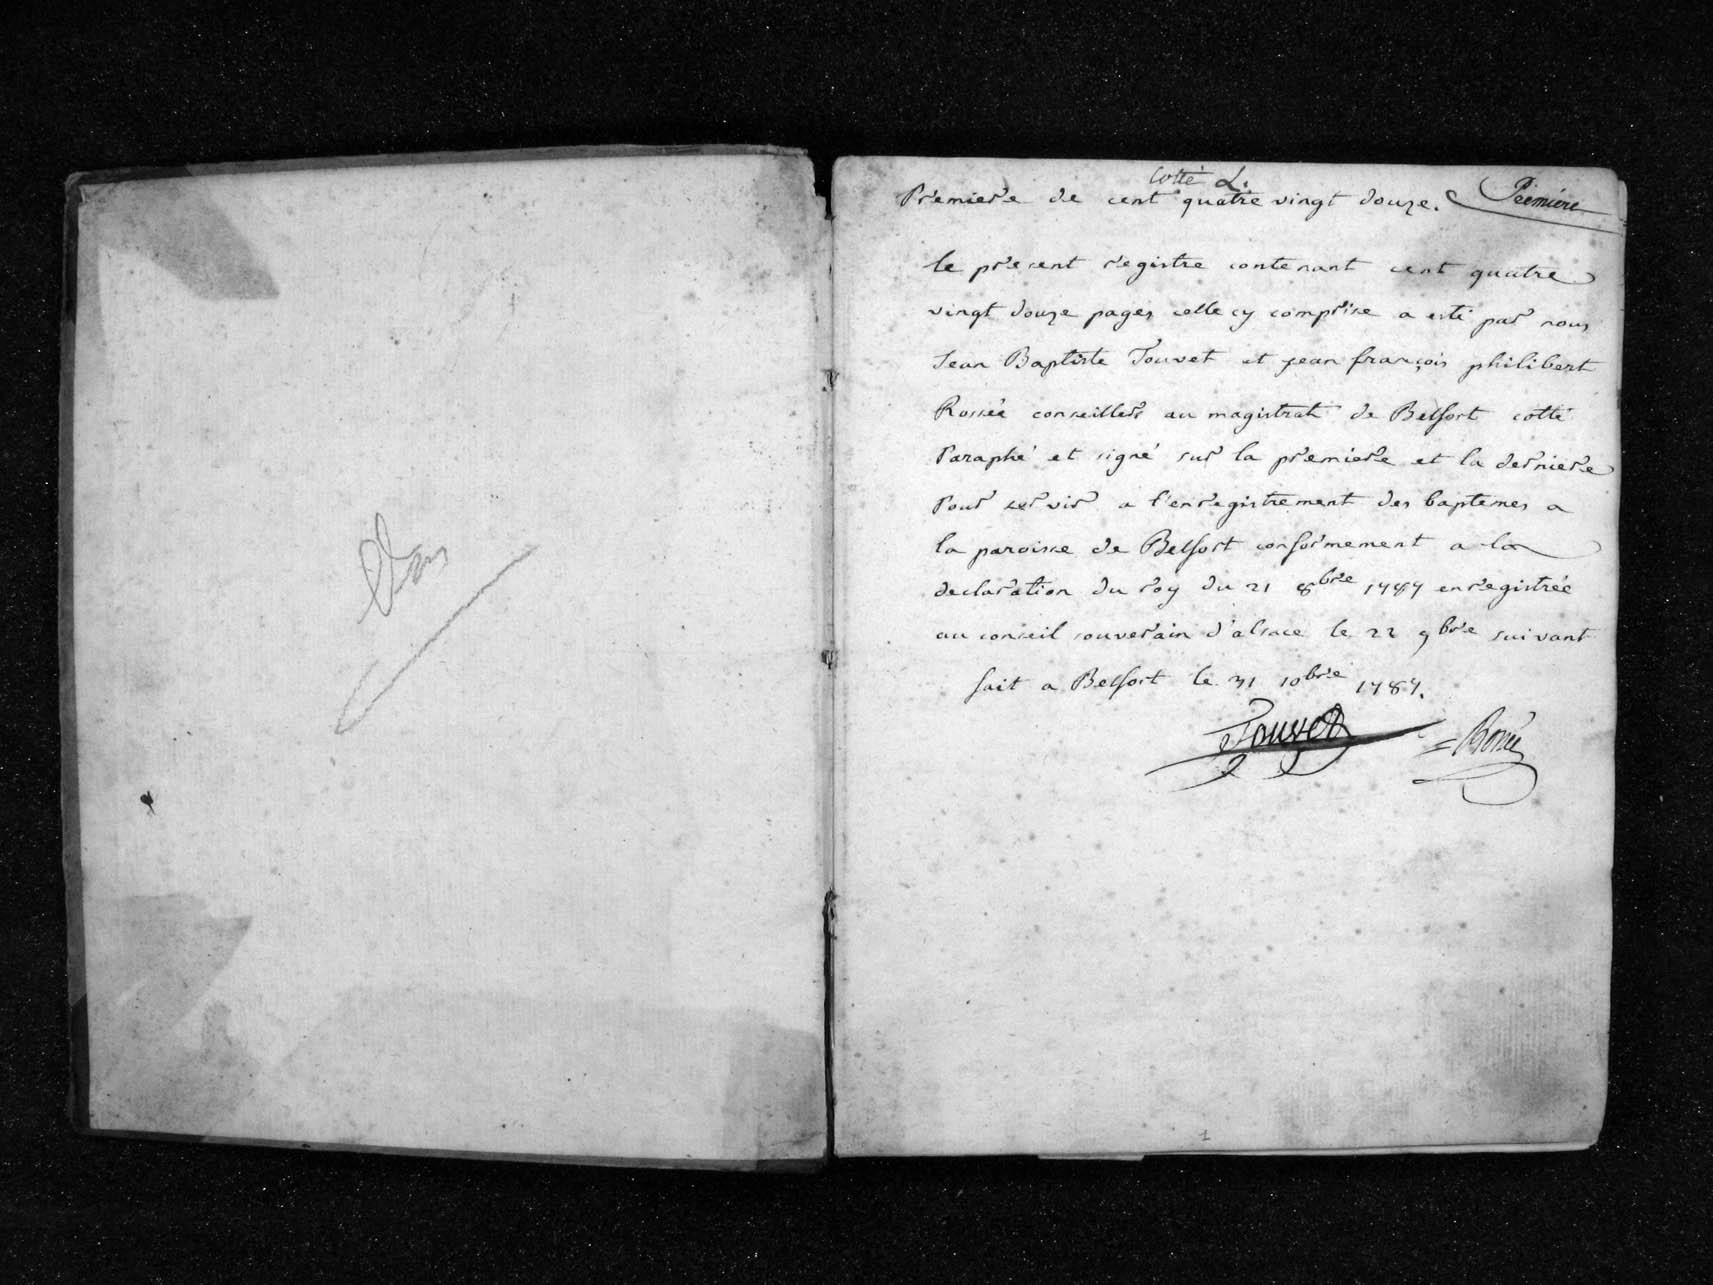 Cotté L.
Premiere de cent quatre vingt douze. Premiére
le present registre contenant cent quatre
vingt douze pages celle cy comprise a esté par nous
Jean Baptiste Touvet et jean françois philibert
Rossée conseillers au magistrat de Belfort cotté
Paraphé et signé sur la premiere et la derniere
Pour servir a l'enregistrement des baptemes a
la paroisse de Belfort conformement a la
declaration du roy du 21 8bre 1787 enregistrée
au conseil souverain d'alsace le 22 9bre suivant
fait a Belfort le 31 10bre 1787.
Touvet Rossée
1